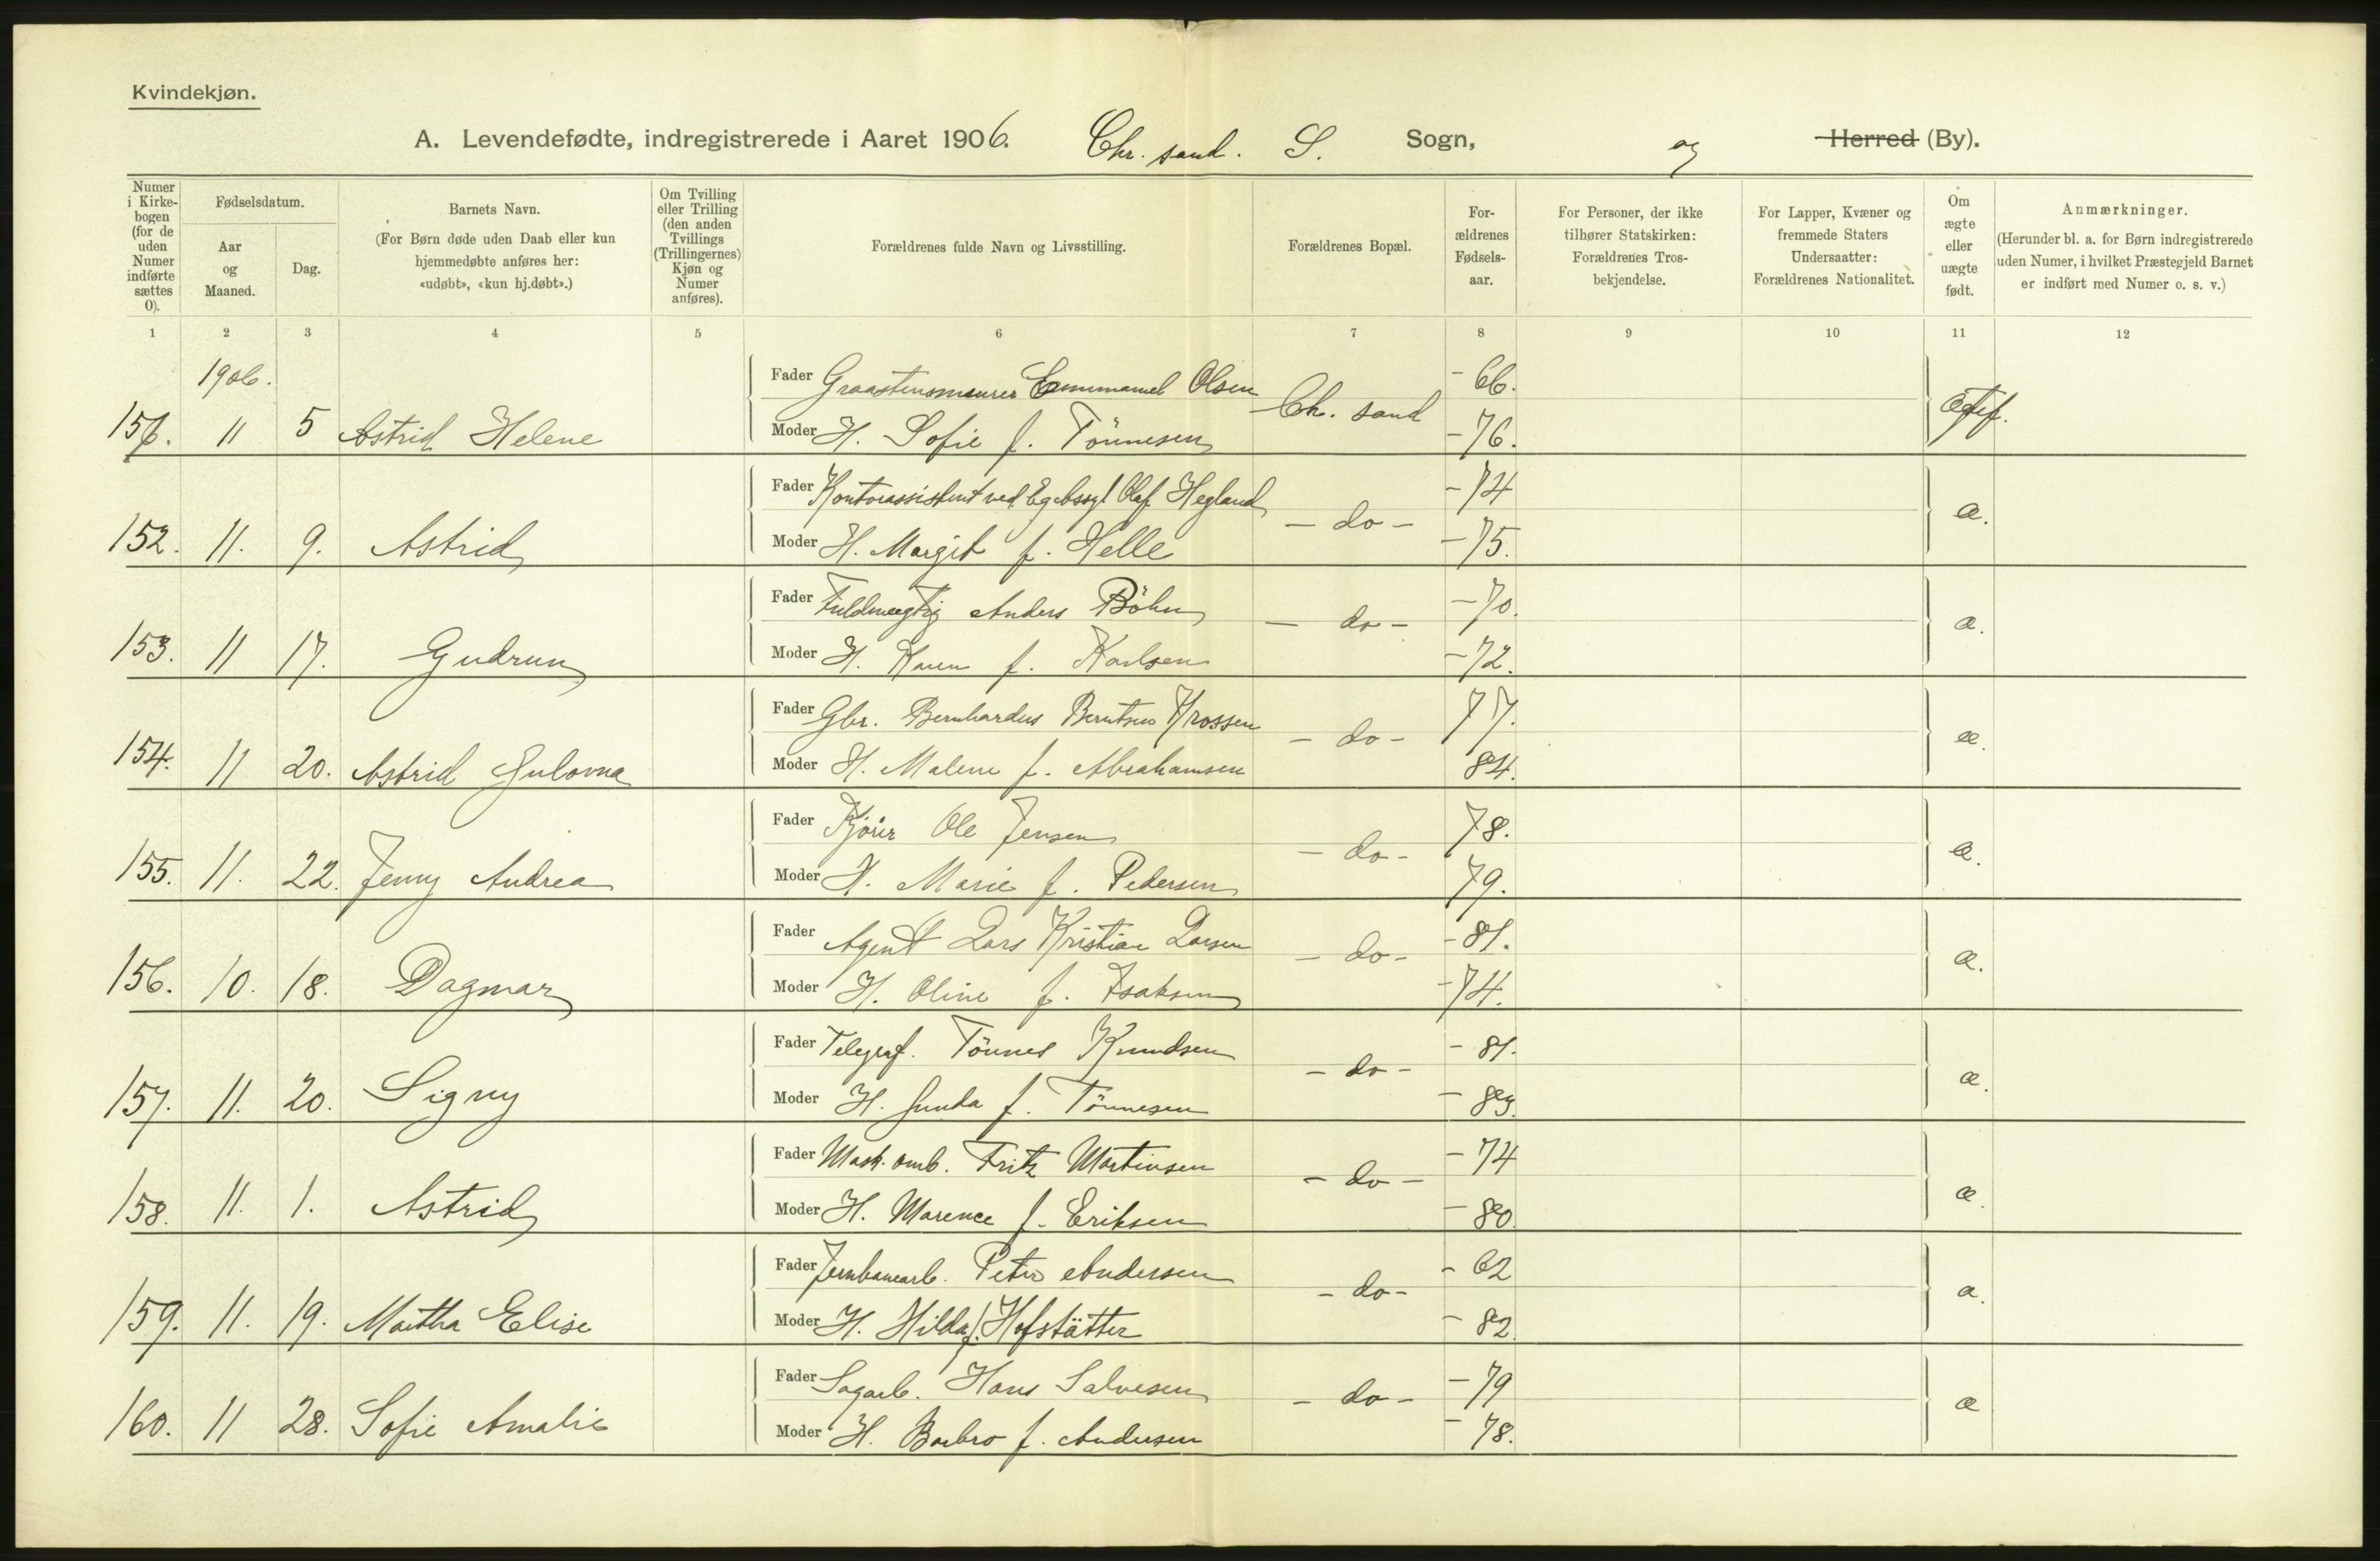 Kvindekjøn.
A. Levendefødte, indregistrerede i Aaret 1906. Chr. sand. S. Sogn, og Herred (By).
Numer i Kirke-bogen (for de uden Numer indførte sættes 0).
Fødselsdatum.
Aar og Maaned.
Dag.
Barnets Navn.
(For Børn døde uden Daab eller kun hjemmedøbte anføres her: «udøbt», «kun hj.døbt».)
Om Tvilling eller Trilling (den anden Tvillings (Trillingernes) Kjøn og Numer anføres).
Forældrenes fulde Navn og Livsstilling.
Forældrenes Bopæl.
For-ældrenes Fødsels-aar.
For Personer, der ikke tilhører Statskirken: Forældrenes Tros-bekjendelse.
For Lapper, Kvæner og fremmede Staters Undersaatter: Forældrenes Nationalitet.
Om ægte eller uægte født.
Anmærkninger.
(Herunder bl. a. for Børn indregistrerede uden Numer, i hvilket Præstegjeld Barnet er indført med Numer o. s. v.)
1 2 3 4 5 6 7 8 9 10 11 12
1906.
Fader Graastensmurer Emmanuel Olsen Ch. sand - 66.
151. 11 5 Astrid Helene Moder H. Sofie f. Tönnesen - 76.
Fader Kontorassistent ved Olaf Hegland - do - - 74 æ.
152. 11. 9. Astrid Moder H. Margit f. Helle - 75.
Fader Fuldmægtig Anders Böhn - do - - 70. æ.
153. 11 17. Gudrun Moder H. Karen f. Karlsen - 72.
Fader Gbr. Bernhardus Berntsen Krossen - do - 77. æ.
154. 11 20. Astrid Gulovna Moder H. Malene f. Abrahamsen 84.
Fader Kjörer Ole Jensen - do - 78. æ.
155. 11. 22. Jenny Andrea Moder H. Marie f. Pedersen 79.
Fader Agent Lars Kristian Larsen - do - - 81. æ.
156. 10. 18. Dagmar Moder H. Oline f. Isaksen - 74.
Fader Telegraf. Tönnes Knudsen - do - - 81. æ.
157. 11. 20. Signy Moder H. Gunda f. Tönnesen - 83.
Fader Mask. arb. Fritz Martinsen - do - - 74 æ.
158. 11. 1. Astrid Moder H. Marence f. Eriksen - 80.
Fader Jernbanearb. Peter Andersen - do - - 62 æ.
159. 11. 19. Martha Elise Moder H. Hilda f. Hofstätter - 82.
Fader Sagarb. Hans Salvesen - do - - 79 æ
160. 11 28. Sofie Amalie Moder H. Barbro f. Andersen - 78.